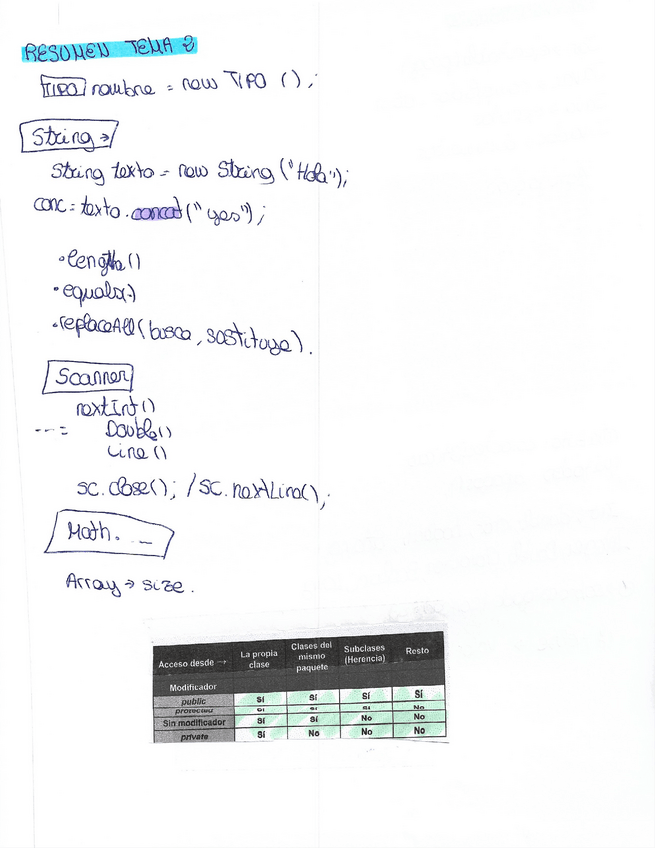 RESUMEN TEMA 2
TIPO nombre = new TIPO ();
String →
String texto = new String ("Hola");
conc = texto.concat(" yes");
• length()
• equals(-)
• replaceAll(busca, sustituye).
Scanner
nextInt()
--- = Double()
Line()
sc.close(); / sc.nextLine();
Math. _
Array → size.
Acceso desde → La propia clase Clases del mismo paquete Subclases (Herencia) Resto
Modificador
public Sí Sí Sí Sí
protected Sí Sí Sí No
Sin modificador Sí Sí No No
private Sí No No No